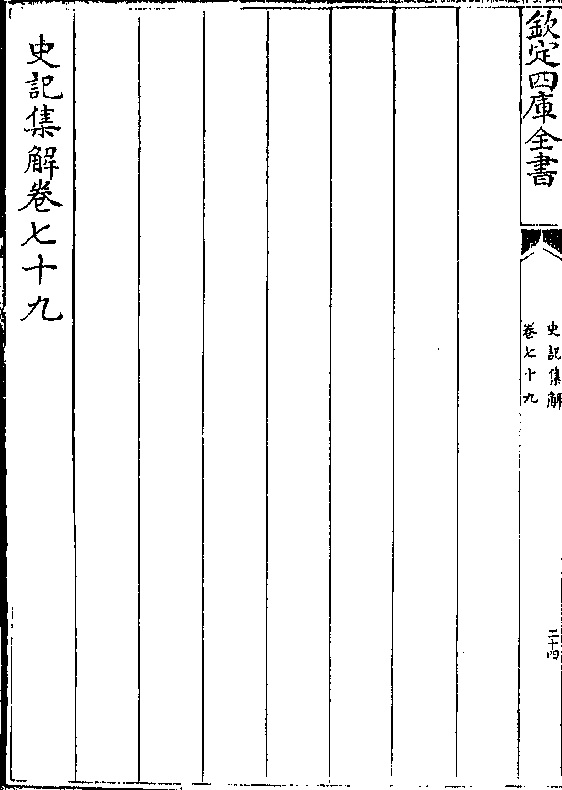 欽定四庫全書
史記集解
卷七十九
二十四
史記集解卷七十九